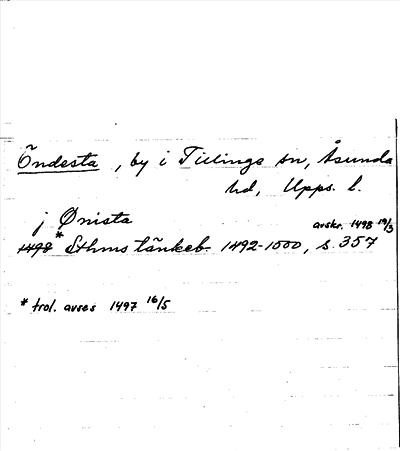 Öndesta, by i Tillinge sn, Åsunda
hd, Upps. l.
j Ønista
avskr. 1498 19/3
1498* Sthms tänkeb. 1492-1500, s. 357
* trol. avses 1497 16/5